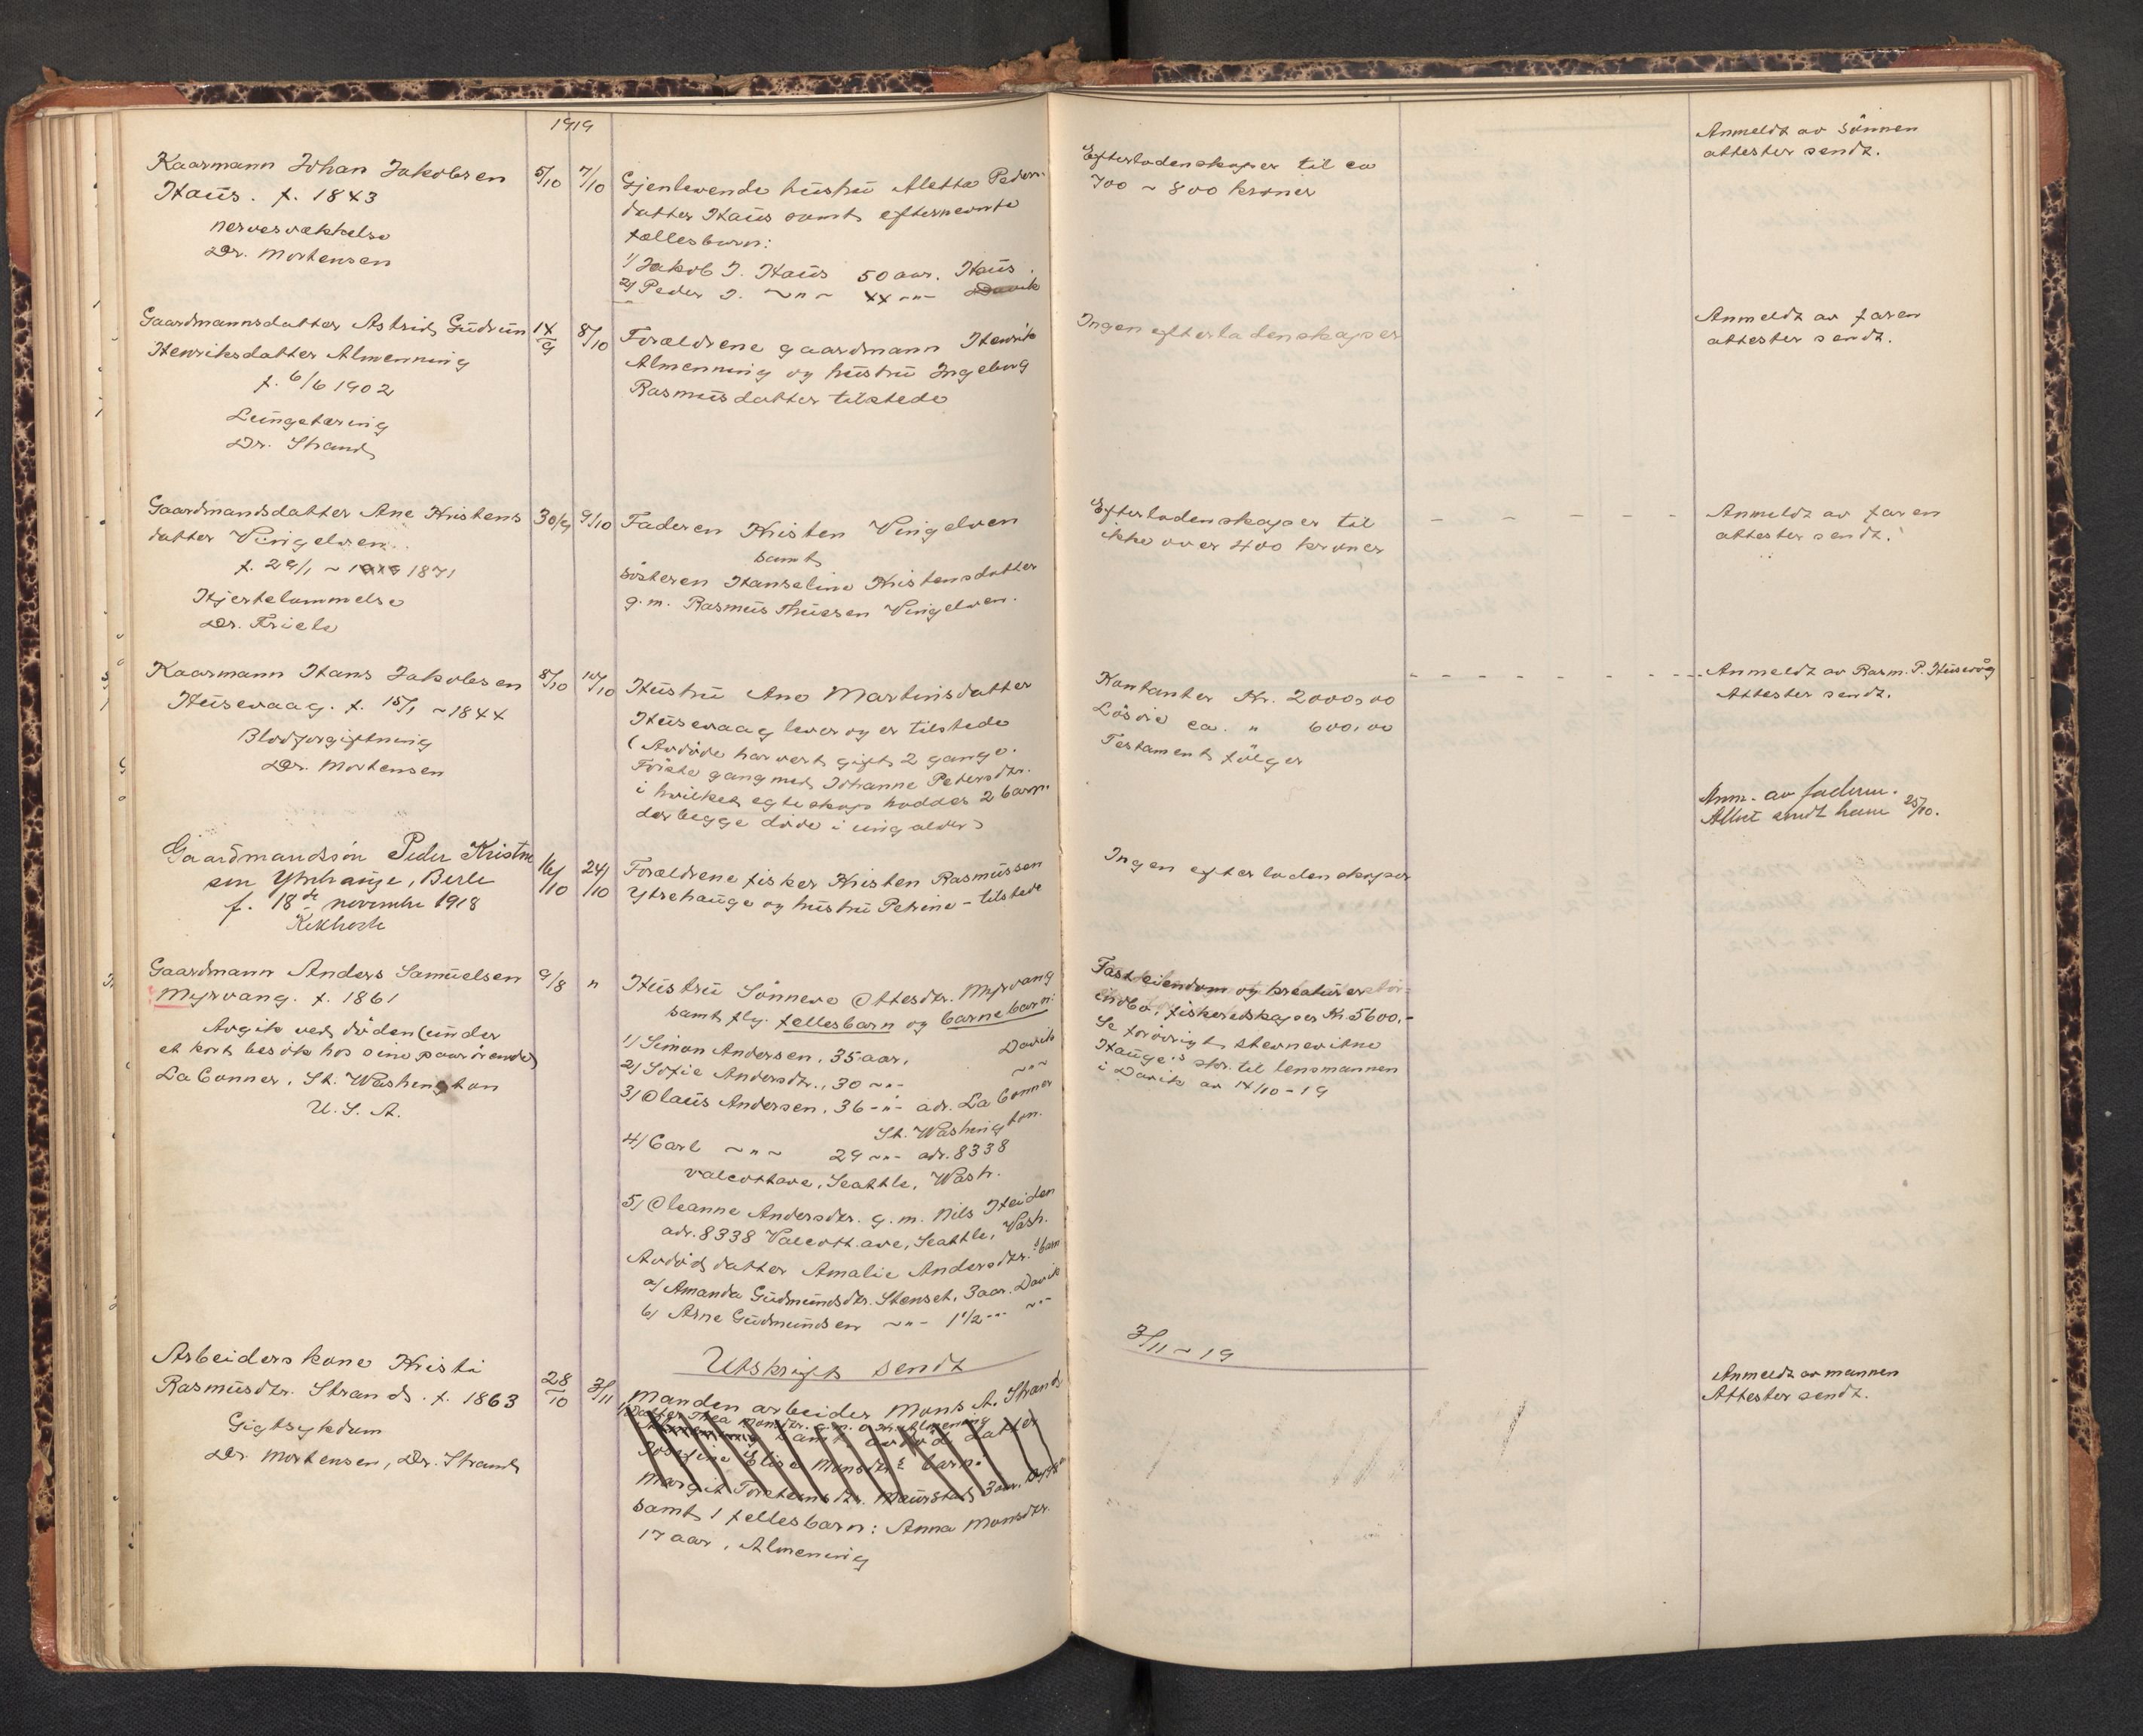 1919
Kaarmann Johan Jakobsen
Haus. f. 1843
nervesvækkelse
Dr. Mortensen
5/10
7/10
Gjenlevende hustru Aletta Peders-
datter Haus samt efternevnte
fællesbarn:
1/ Jakob J. Haus 50 aar. Haus.
2/ Peder J. ~"~ 44 -"- Davik
Efterladenskaper til ca
700 ~ 800 kroner
Anmeldt av sönnen
attester sendt.
Gaardmannsdatter Astrid Gudrun
Henriksdatter Almenning
f. 6/6 1902
Lungetæring
Dr. Strand
14/9
8/10
Forældrene gaardmann Henrik
Almenning og hustru Ingeborg
Rasmusdatter tilstede
Ingen efterladenskaper
Anmeldt av faren
attester sendt.
Gaardmandsdatter Ane Kristens
datter Vingelven.
f. 29/1 ~ 1871
Hjertelammelse
Dr. Friele
30/9
9/10
Faderen Kristen Vingelven
samt
sösteren Hanseline Kristensdatter
g.m. Rasmus Thuesen Vingelven.
Efterladenskaper til
ikke over 400 kroner
Anmeldt av faren
attester sendt.
Kaarmann Hans Jakobsen
Husevaag. f. 15/1 ~ 1844
Blodforgiftning
Dr. Mortensen
8/10
10/10
Hustru Ane Martinsdatter
Husevaag lever og er tilstede
(Avdöde har vert gift 2 gange.
Förste gang med Johanne Pedersdtr.
i hvilket egteskap haddes 2 barn.
der begge döde i ung alder)
Kontanter Kr. 2000,00
Lösöre ca. " 600,00
Testament fölger
Anmeldt av Rasm. P. Husevåg
Attester sendt.
Gaardmandssön Peder Kristen
sen Ytrehauge, Berle
f. 18de november 1918
Kikhoste
16/10
24/10
Forældrene fisker Kristen Rasmussen
Ytrehauge og hustru Petrine - tilstede
Ingen efterladenskaper
Anm. av faderen.
Attest sendt ham 25/10.
Gaardmann Anders Samuelsen
Myrvang. f. 1861
Avgik ved döden (under
et kort besök hos sine paarörende)
La Conner, St. Washington
U. S. A.
9/8
"
Hustru Sönneve Ottesdtr. Myrvang
samt flg. fellesbarn og barnebarn:
1/ Simon Andersen, 35 aar, Davik
2/ Sofie Andersdtr., 30 ~"- ~"~
3/ Olaus Andersen, 36 -"- adr. La Conner
St. Washington.
4/ Carl ~"~ 29 ~"- adr. 8338
Valcottave, Seattle, Wash.
5/ Oleanne Andersdtr. g.m. Nils Heiden
adr. 8338 Valcott. ave, Seattle, Wash.
Avdöd datter Amalie Andersdtr.s barn
a/ Amanda Gudmundsdtr. Stenset, 3 aar. Davik
b/ Arne Gudmundsen ~"- 1 1/2 -"- ~"-
Fast eiendom og kreaturer
indbo, fiskeredskaper Kr. 5600,-
Se forövrigt stevnevitne
Hauge's skr. til lensmannen
i Davik av 14/10 - 19
Utskrift sendt
3/11 ~ 19
Arbeiderskone Kristi
Rasmusdtr. Strand. f. 1863
Gigtsykdom
Dr. Mortensen, Dr. Strand
28/10
3/11
Manden arbeider Mons A. Strand
1/ Datter Thea Monsdtr. g.m. O. M. Almenning
samt avdöd datter
Josefine Elise Monsdtr.s barn:
Margit Torstensdtr. Maurstad, 3 aar,
samt 1 fellesbarn: Anna Monsdtr.
17 aar, Almening
Anmeldt av mannen
Attester sendt.